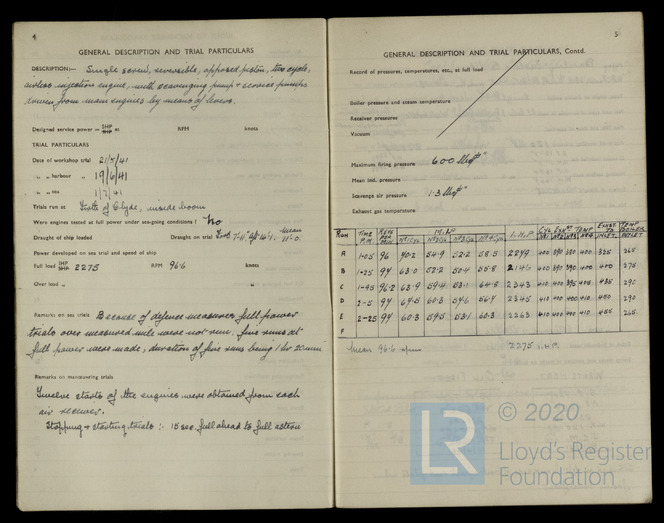 4
GENERAL DESCRIPTION AND TRIAL PARTICULARS
DESCRIPTION:— Single screw, reversible, opposed piston, two cycle,
airless injection engine, with scavenging pump & service pumps
driven from main engines by means of levers.
Designed service power — SHP IHP at RPM knots
TRIAL PARTICULARS
Date of workshop trial 21/5/41
„ „ harbour „ 19/6/41
„ „ sea 1/7/41
Trials run at Firth of Clyde, inside boom
Were engines tested at full power under sea-going conditions ? No
Draught of ship loaded Draught on trial Ford 7'-11" Aft 14'-1. Mean 11'-0.
Power developed on sea trial and speed of ship
Full load SHP IHP 2275 RPM 96.6 knots
Over load „ „ „
Remarks on sea trials Because of defence measures full power
trials over measured mile were not run. Five runs at
full power were made, duration of five runs being 1 hr 20 min
Remarks on manœuvring trials
Twelve starts of the engines were obtained from each
air receiver.
Stopping & starting trials :- 15 sec. full ahead to full astern
5
GENERAL DESCRIPTION AND TRIAL PARTICULARS, Contd.
Record of pressures, temperatures, etc., at full load
Boiler pressure and steam temperature
Receiver pressures
Vacuum
Maximum firing pressure 600 lbs/□"
Mean ind. pressure
Scavenge air pressure 1.3 lbs/□"
Exhaust gas temperature
RUN TIME P.M. REVS PER MIN M.I.P. No1 Cyl No2 Cyl No3 Cyl No4 Cyl I.H.P CYL EXHST TEMP No1 No2 No3 No4 EXHST TO INLET. TEMP BOILER OUTLET
A 1-05 96 60.2 54.9 52.2 58.5 2249 400 390 390 400 325 265
B 1-25 97 63.0 52.2 50.4 55.8 400 390 390 400 400 270
C 1-45 96.2 63.9 59.4 53.1 64.8 2343 410 400 395 400 435 290
D 2-5 97 64.5 60.3 54.6 56.7 2345 410 400 400 410 450 290
E 2-25 97 60.3 59.5 53.1 60.3 2263 410 400 400 410 455 265
F
Mean 96.6 rpm 2275 I.H.P.
LR © 2020
Lloyd's Register
Foundation